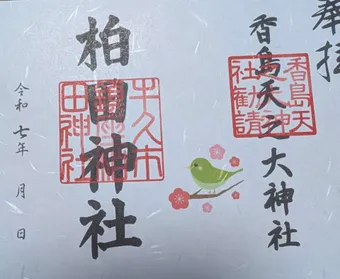 奉拝
香島天之大神社
香島天
社勧請
柏田神社
牛久市
田神社
令和七年 月 日